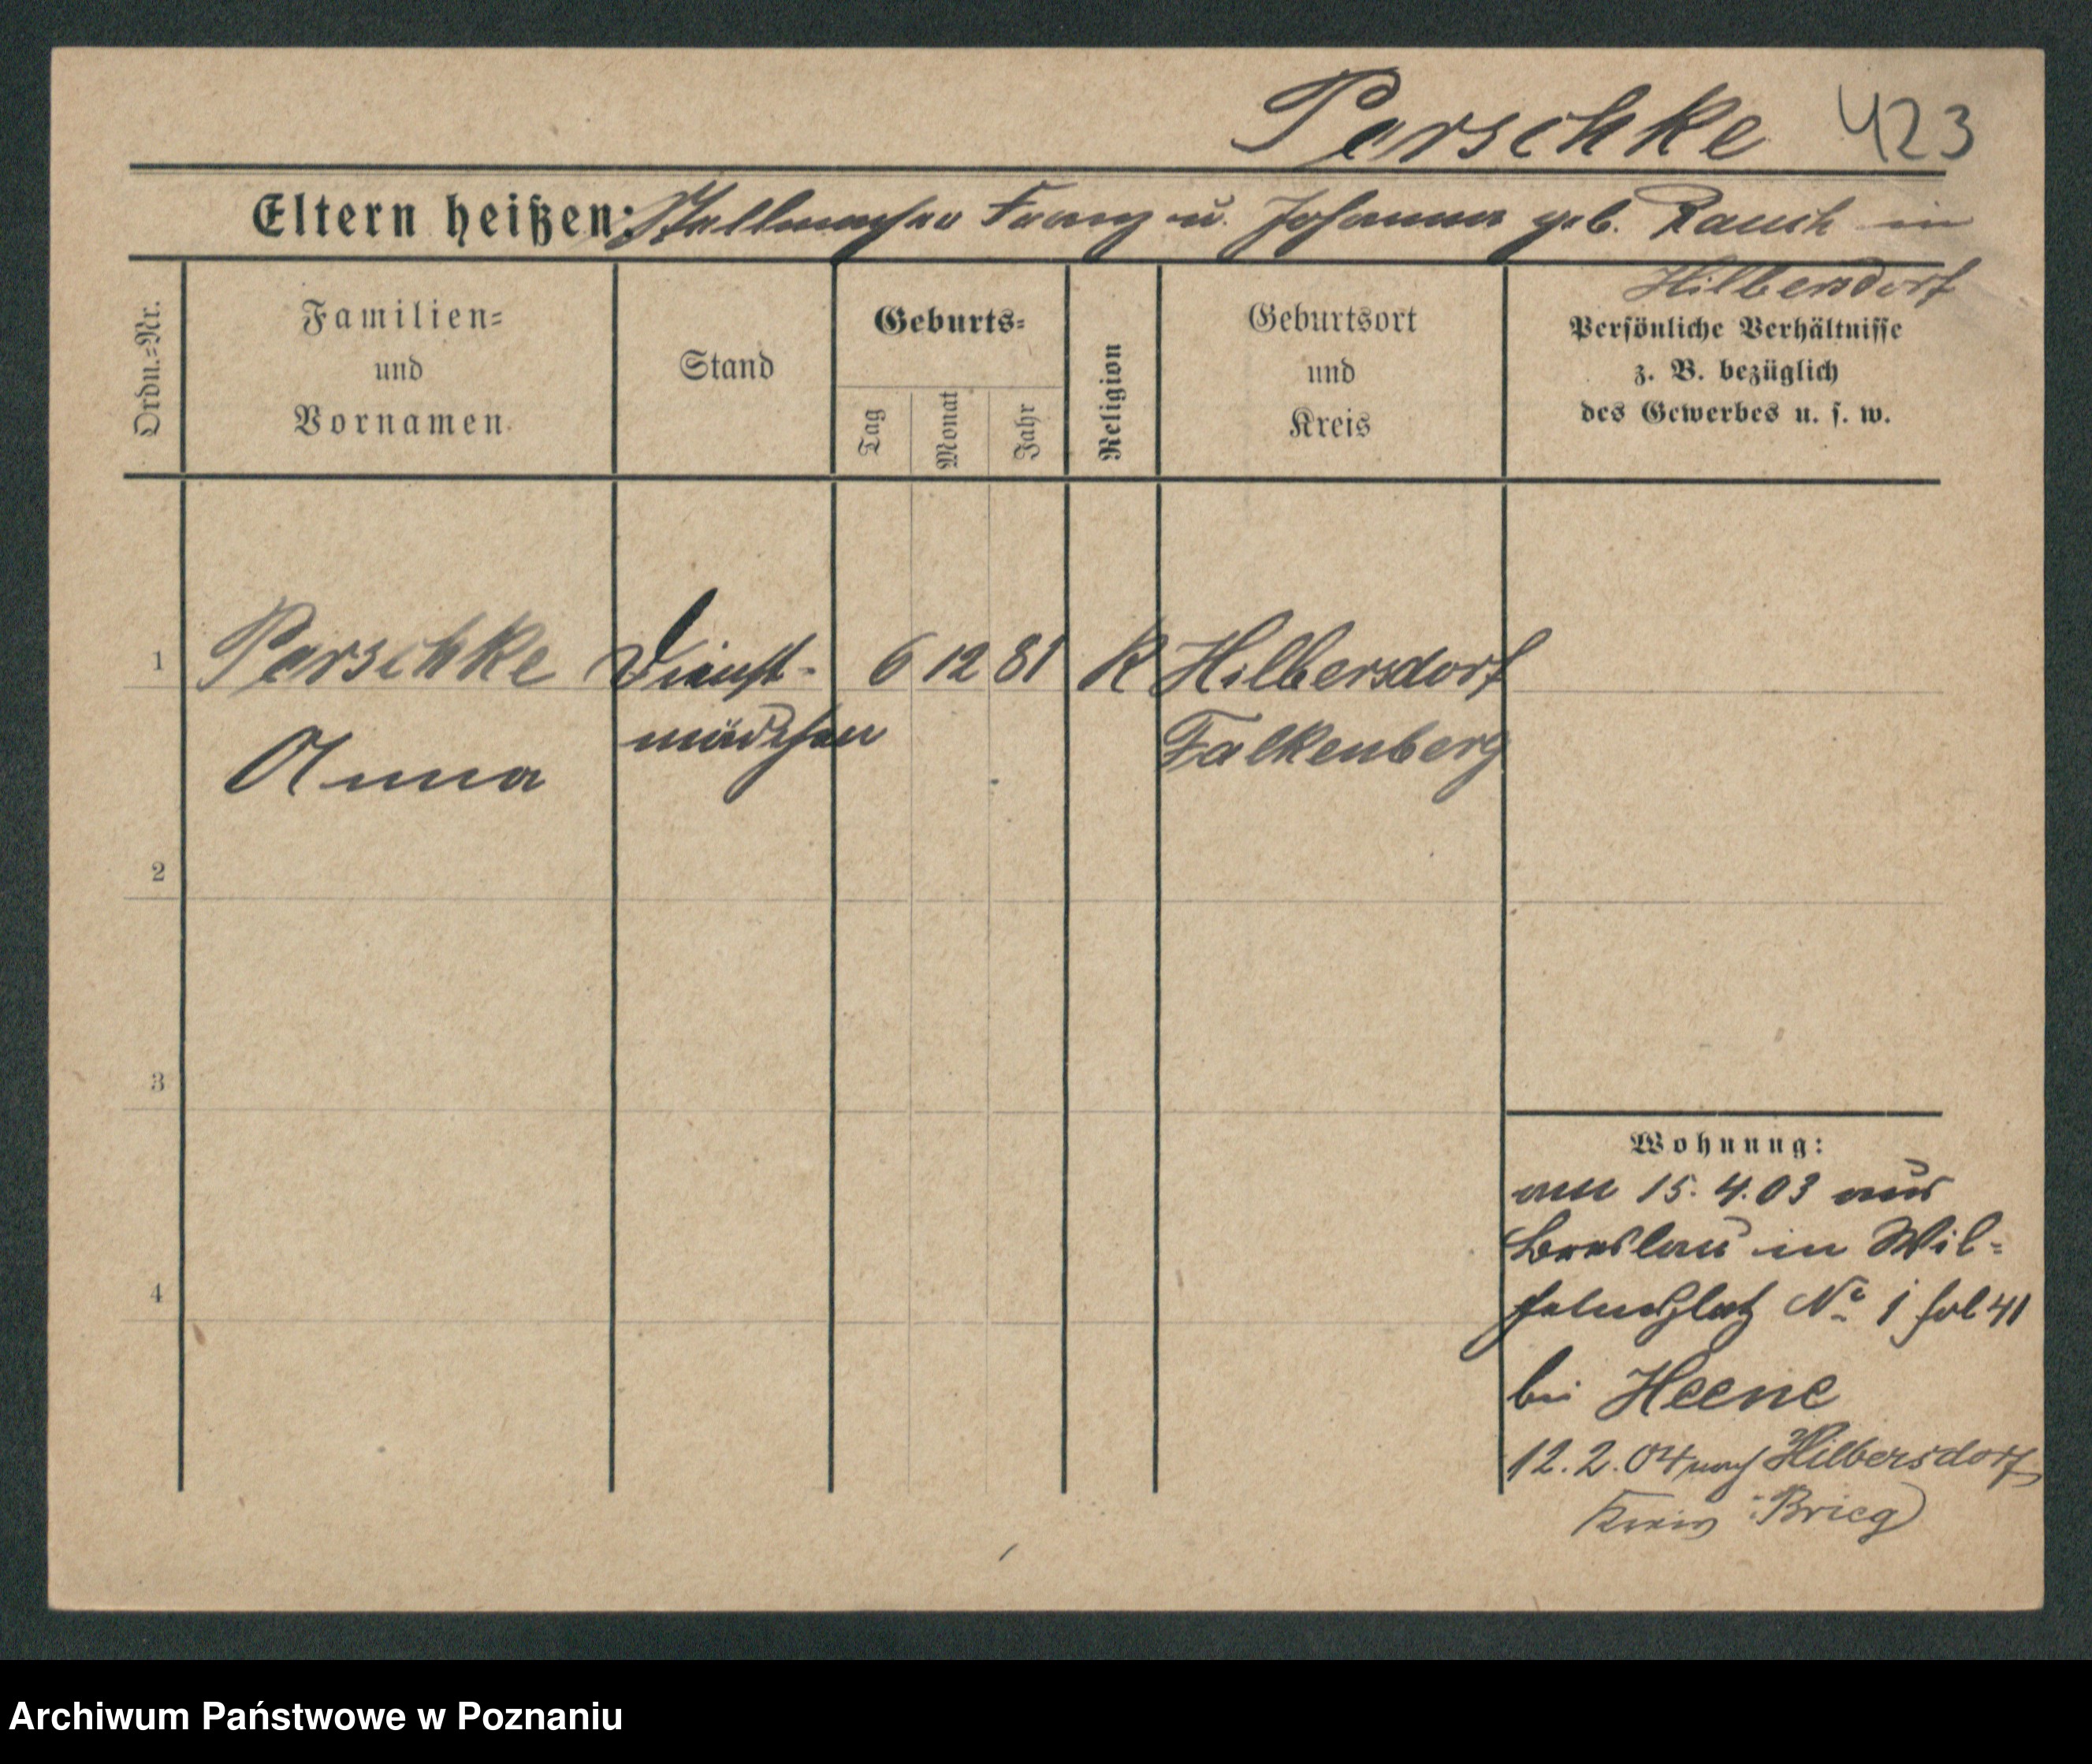 Perschke 423
Eltern heißen: Stellmacher Franz u. Johanna geb. Rauch in
Hilbersdorf
Ordn.=Nr.
Familien=
und
Vornamen.
Stand
Geburts=
Tag
Monat
Jahr
Religion
Geburtsort
und
Kreis
Persönliche Verhältnisse
z. B. bezüglich
des Gewerbes u. s. w.
1 Perschke Dienst- 6 12 81 K Hilbersdorf
Anna mädchen Falkenberg
2
3
4
Wohnung:
am 15. 4. 03 aus
Breslau in Wil=
helmsplatz No 1 fol 41
bei Heene
12. 2. 04 nach Hilbersdorf
Kreis Brieg
Archiwum Państwowe w Poznaniu